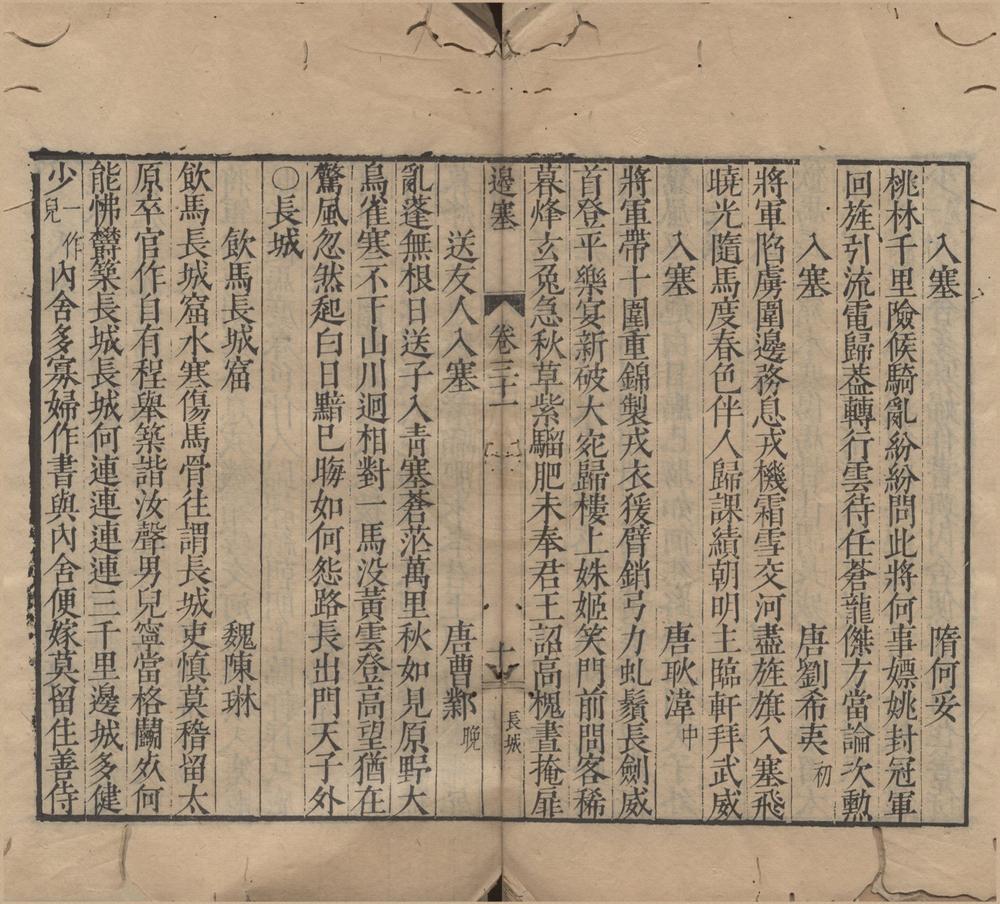 入塞 隋何妥
桃林千里險候騎亂紛紛問此將何事嫖姚封冠軍
回旌引流電歸葢轉行雲待任蒼龍傑方當論次勲
入塞 唐劉希夷 初
將軍陷虜圍邊務息戎機霜雪交河盡旌旗入塞飛
曉光隨馬度春色伴人歸課績朝明主臨軒拜武威
入塞 唐耿湋 中
將軍帶十圍重錦製戎衣猨臂銷弓力虬鬚長劍威
首登平樂宴新破大宛歸樓上姝姬笑門前問客稀
暮烽玄兔急秋草紫騮肥未奉君王詔高槐晝掩扉
邊塞 卷三十一 十 長城
送友人入塞 唐曹鄴 晚
亂蓬無根日送子入青塞蒼茫萬里秋如見原野大
鳥雀寒不下山川迥相對一馬没黃雲登高望猶在
驚風忽然起白日黯巳晦如何怨路長出門天子外
○長城
飲馬長城窟 魏陳琳
飲馬長城窟水寒傷馬骨往謂長城吏愼莫稽留太
原卒官作自有程舉築諧汝聲男兒寧當格鬬㱥何
能怫鬱築長城長城何連連連連三千里邊城多健
少一作兒內舍多寡婦作書與內舍便嫁莫留住善侍